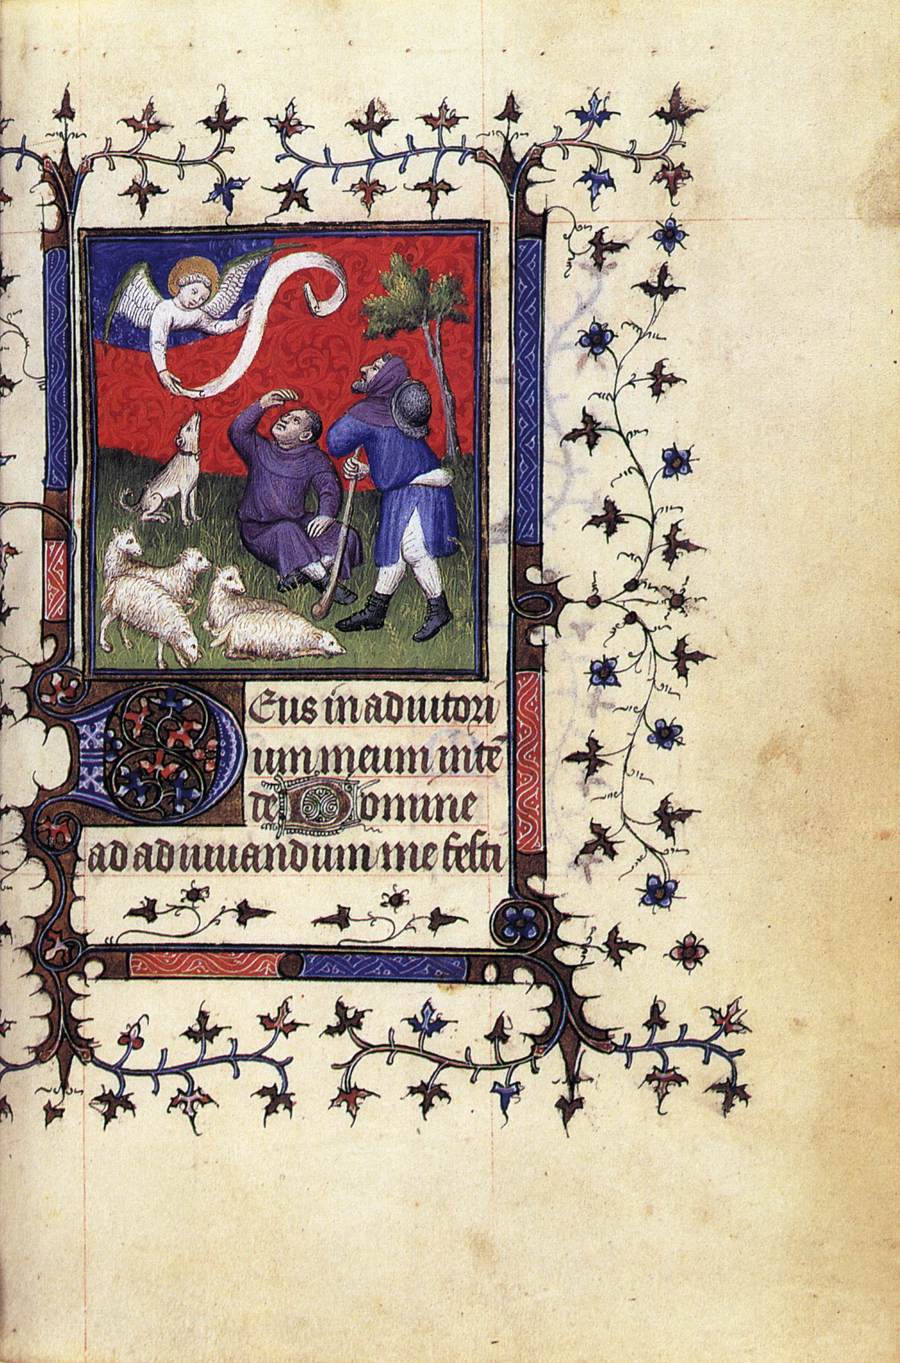 Deus in adiutori
um meum intē
de Domine
ad adiuuandum me festi